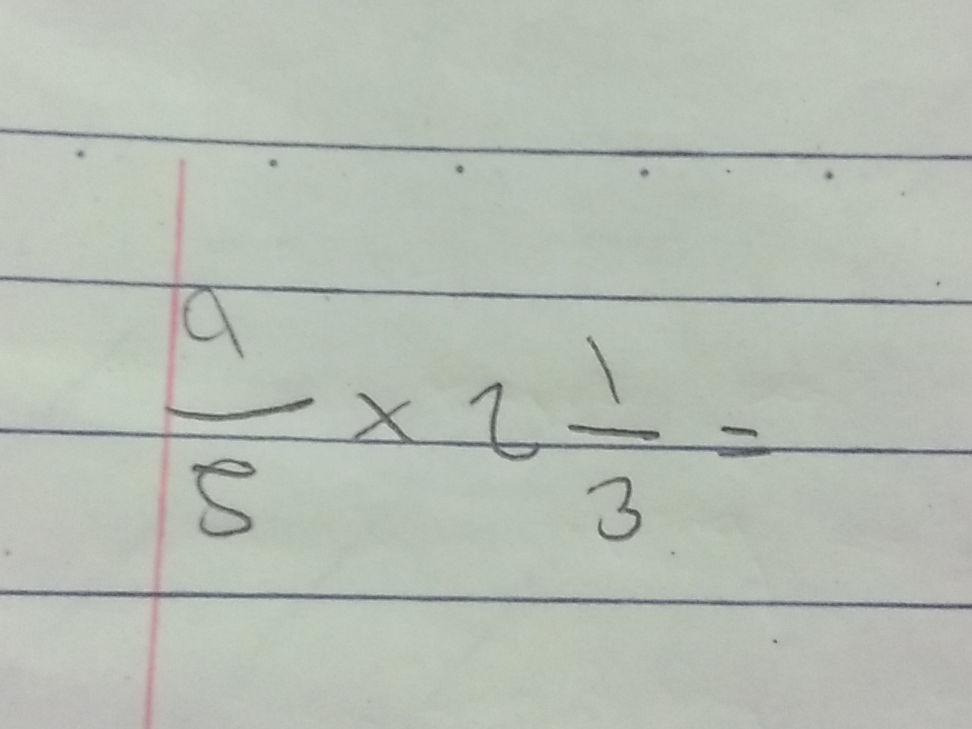 9/5 × 2 1/3 =